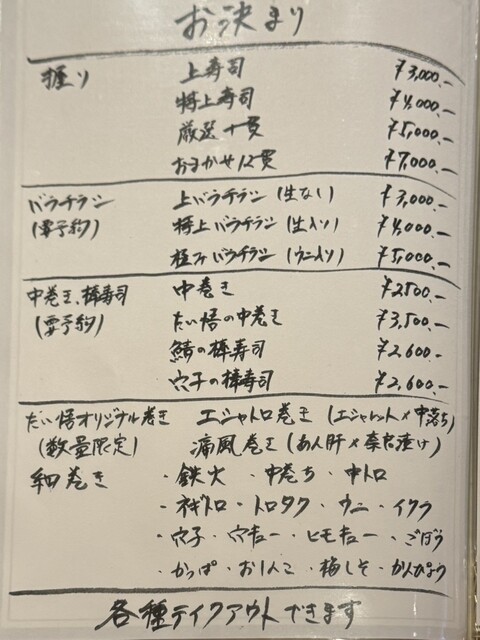 お決まり
握り 上寿司 ¥3,000.-
特上寿司 ¥4,000.-
厳選十貫 ¥5,000.-
おまかせ12貫 ¥7,000.-
バラチラシ 上バラチラシ (生なし) ¥3,000.-
(要予約) 特上バラチラシ (生入り) ¥4,000.-
極みバラチラシ (ウニ入り) ¥5,000.-
中巻き、棒寿司 中巻き ¥2500.-
(要予約) だい悟の中巻き ¥3,500.-
鯖の棒寿司 ¥2,600.-
穴子の棒寿司 ¥2,600.-
だい悟オリジナル巻き エシャトロ巻き (エシャレット×中落ち)
(数量限定) 痛風巻き (あん肝×奈良漬け)
細巻き ・鉄火 ・中巻ち ・中トロ
・ネギトロ ・トロタク ・ウニ ・イクラ
・穴子 ・穴キュー ・ヒモキュー ・ごぼう
・かっぱ ・おしんこ ・梅しそ ・かんぴょう
各種テイクアウトできます